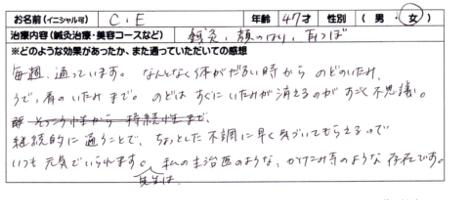 お名前(イニシャル可) C.E 年齢 47才 性別 (男・女)
治療内容(鍼灸治療・美容コースなど) 鍼灸、顔のはり、耳つぼ
※どのような効果があったか、また通っていただいての感想
毎週、通っています。なんとなく体がだるい時から のどのいたみ、
うで、肩のいたみまで。のどは すぐにいたみが消えるのが すごく不思議。
継続的に通うことで、ちょっとした不調に早く気づいてもらえるので
いつも元気でいられます。先生は、私の主治医のような、かけこみ寺のような存在です。